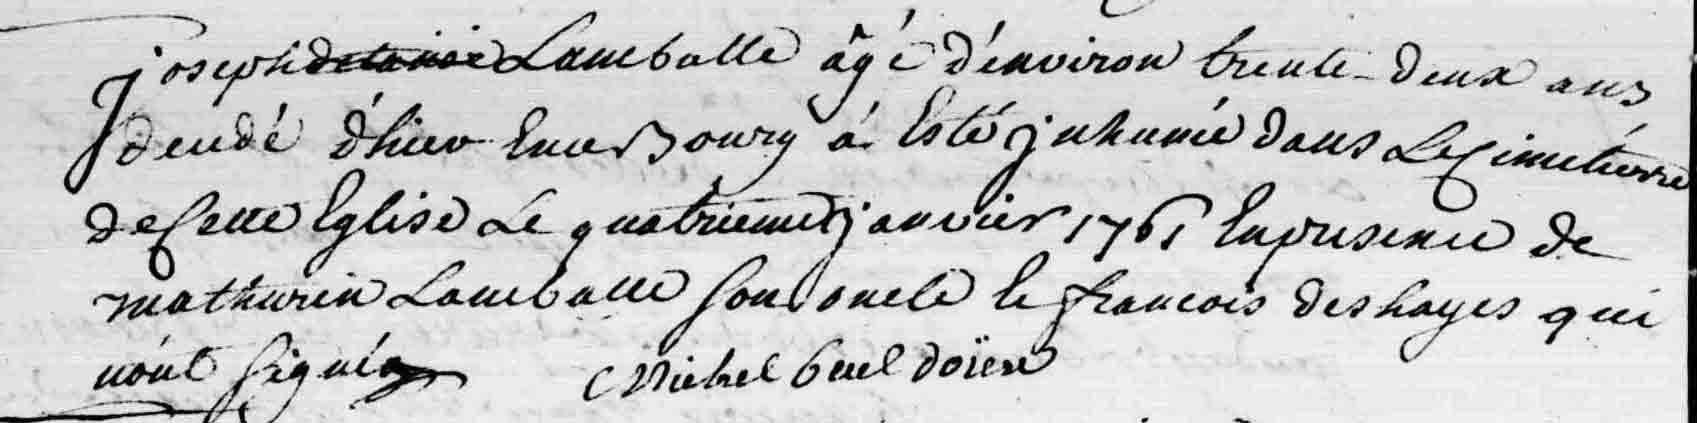 joseph Lamballe âgé d'énviron trente-deux ans
dendé d'hier En ce Bourg á Esté jnhumé dans Le Cimetierre
de Cette Eglise Le quatrieme janvier 1761 En presence de
mathurin Lamballe Son oncle et francois deshayes qui
nónt Signés Michel doïen